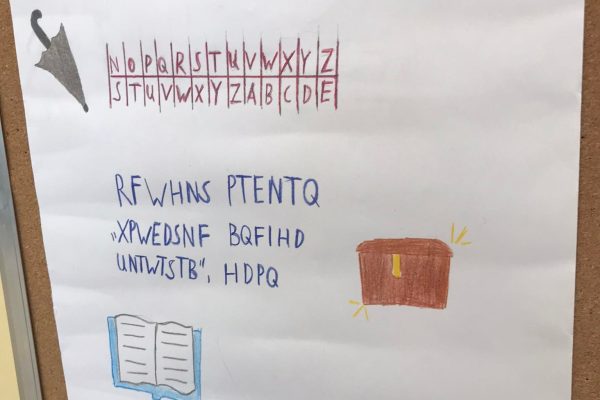 N O P Q R S T U V W X Y Z
S T U V W X Y Z A B C D E
RFWHNS PTENTQ
„XPWEDSNF BQFIHD
UNTWTSTB", HDPQ